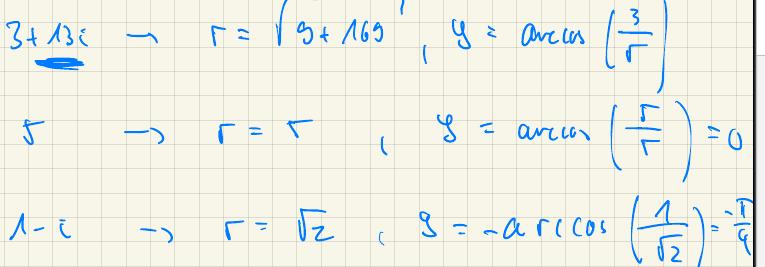 3+13i → r = √(9+169) , φ = arccos (3/r)
5 → r = 5 , φ = arccos (5/5) = 0
1-i → r = √2 , φ = -arccos (1/√2) = -π/4